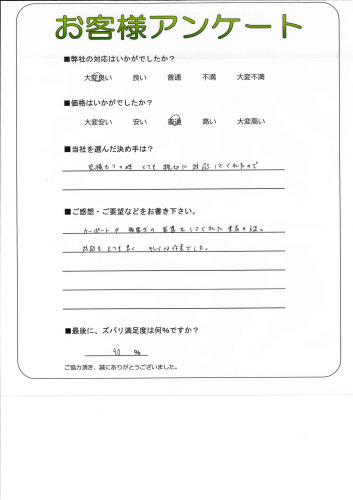 お客様アンケート
■弊社の対応はいかがでしたか？
大変良い 良い 普通 不満 大変不満
■価格はいかがでしたか？
大変安い 安い 普通 高い 大変高い
■当社を選んだ決め手は？
見積もりの時 とても親切に対応してくれたので
■ご感想・ご要望などをお書き下さい。
カーポートや の 業をしてくれた の様。
対応もとても良く きれいな作業でした。
■最後に、ズバリ満足度は何％ですか？
90 ％
ご協力頂き、誠にありがとうございました。